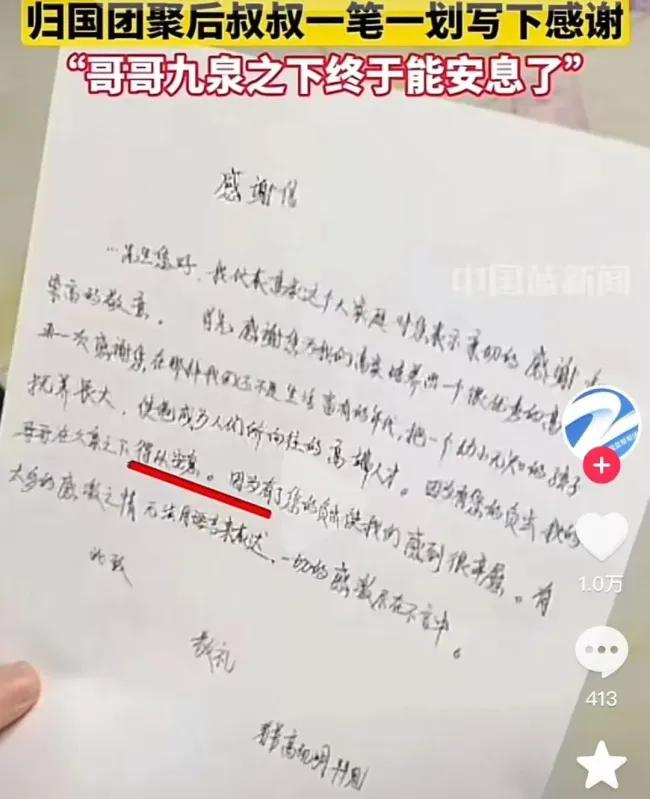 归国团聚后叔叔一笔一划写下感谢
“哥哥九泉之下终于能安息了”
感谢信
…先生您好，我代表高家这个大家庭对您表示亲切的感谢和
崇高的敬意。首先感谢您为我的高家培养出一个很优秀的高
再一次感谢您在那个我们还不是生活富有的年代，把一个幼小无知的孩子
抚养长大，使他成为人们所向往的高端人才。因为有您的负出我的
哥哥在九泉之下得以安息。因为有了您的负出使我们感到很幸福。有
太多的感激之情无法用语言来表达，一切的感激尽在不言中。
此致
敬礼
高
中国蓝新闻
1.0万
413